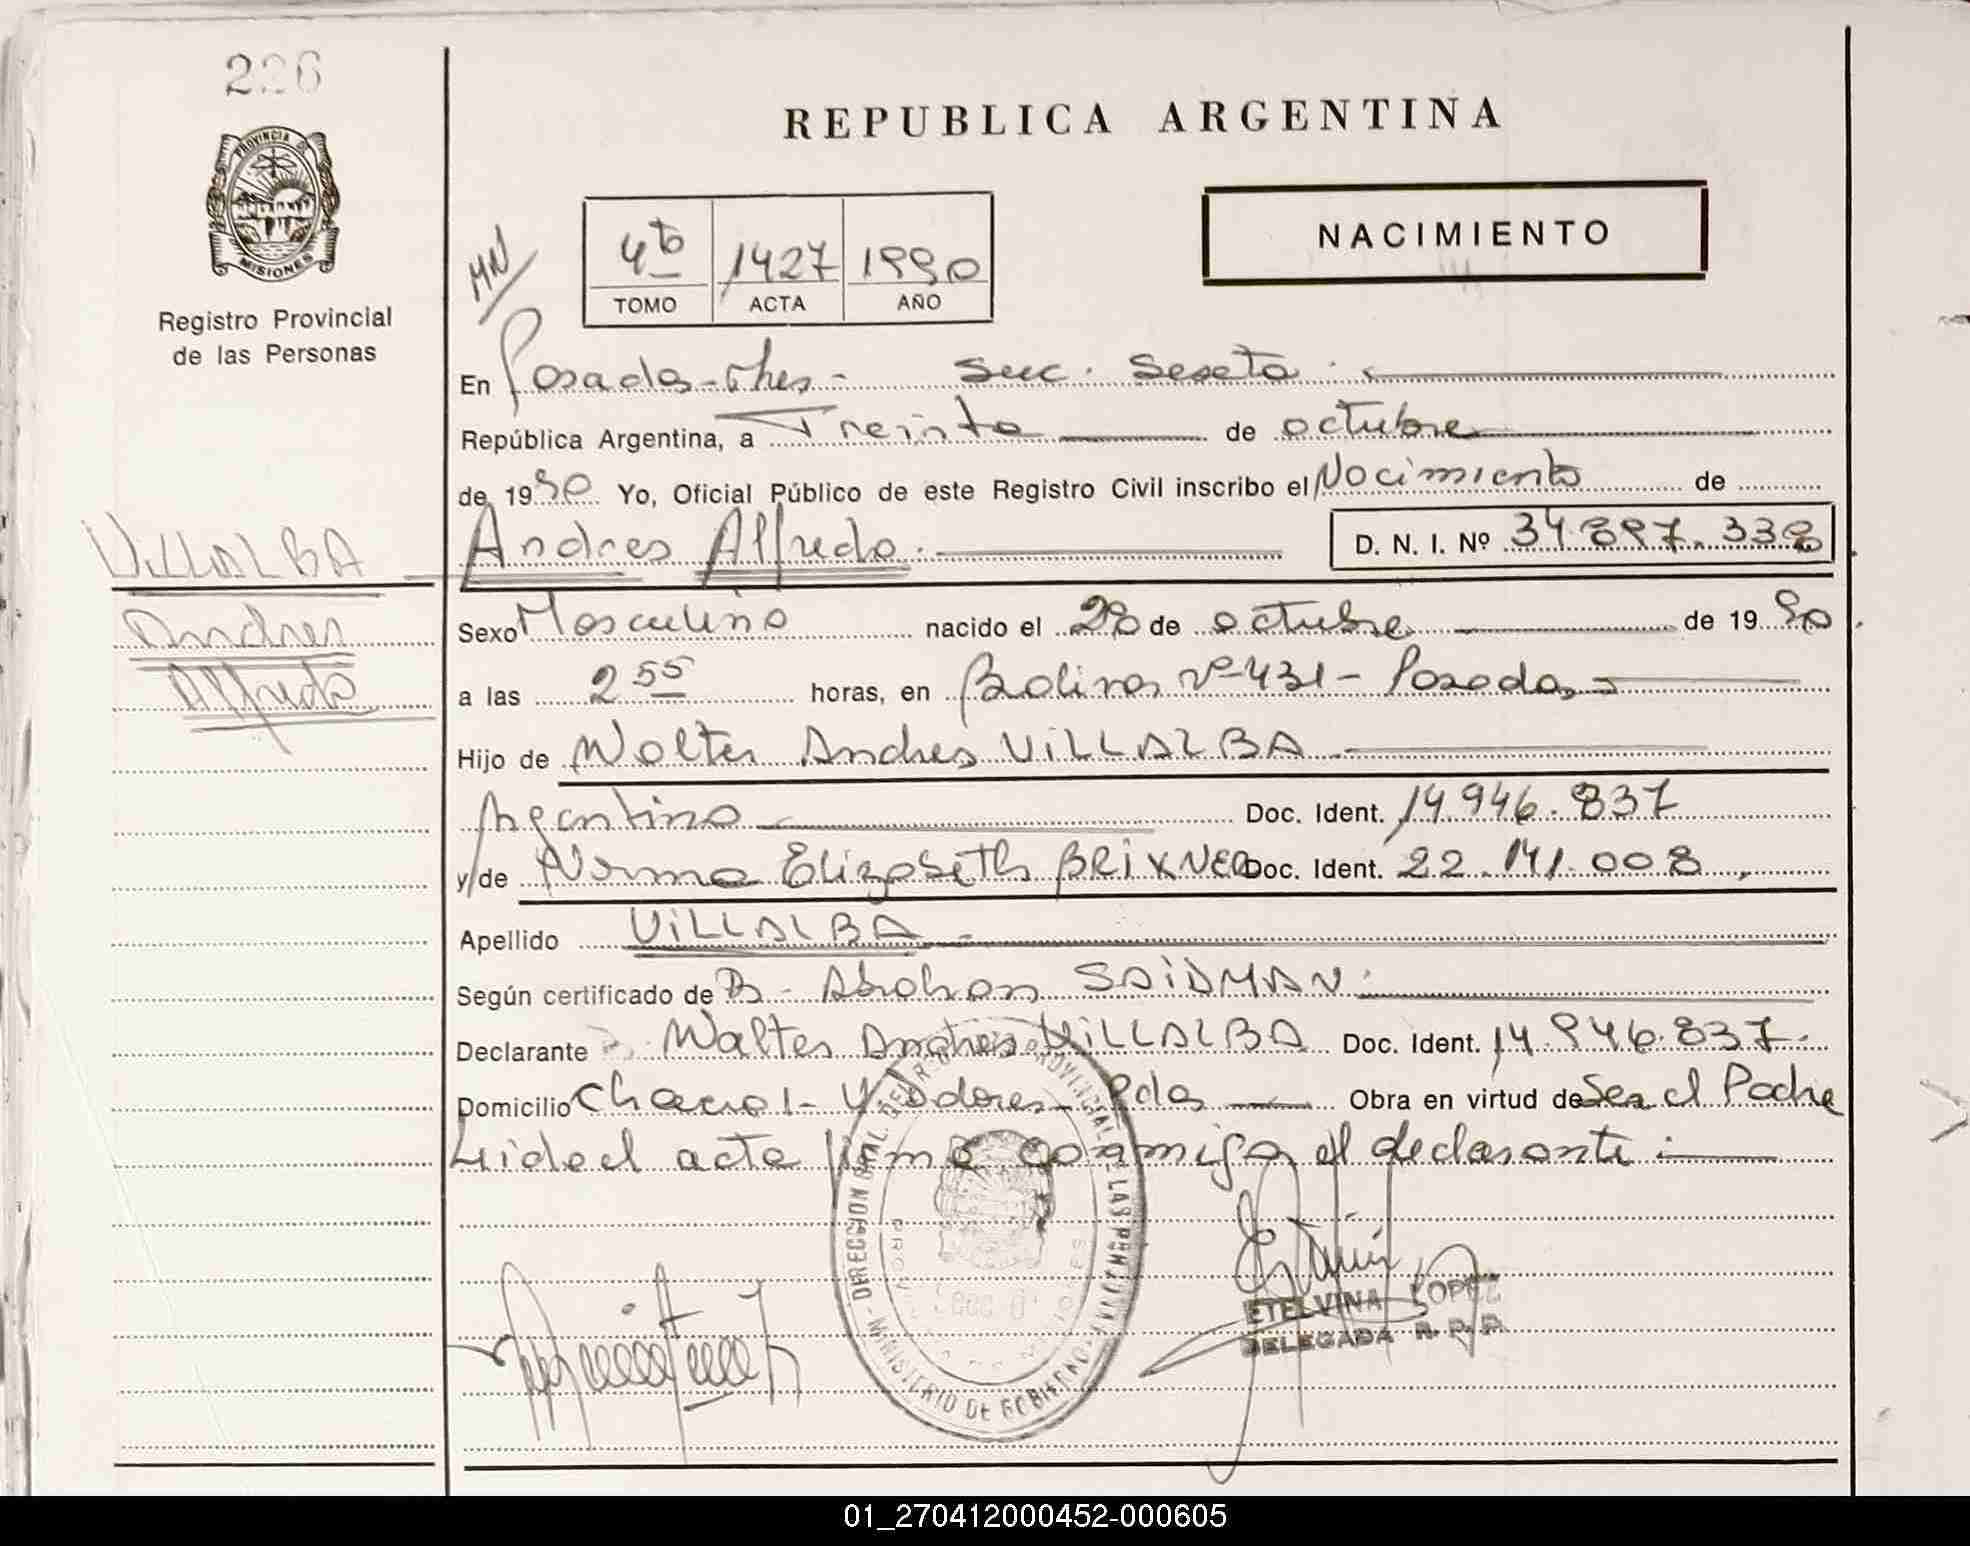 226
PROVINCIA DE
MISIONES
Registro Provincial
de las Personas
REPUBLICA ARGENTINA
NACIMIENTO
4to 1427 1990
TOMO ACTA AÑO
En Posadas - Mnes - Suc. Sexta
República Argentina, a Treinta de octubre
de 1990 Yo, Oficial Público de este Registro Civil inscribo el Nacimiento de
Andres Alfredo D. N. I. Nº 34.897.338
VILLALBA
Andres
Alfredo
Sexo Masculino nacido el de octubre de 1990
a las 2 55 horas, en Bolivar nº 431 - Posadas
Hijo de Walter Andres VILLALBA
Argentino Doc. Ident. 14.946.837
y de Norma Elizabeth BRIXNER Doc. Ident. 22.141.008
Apellido VILLALBA
Según certificado de Dr. Abraham SAIDMAN
Declarante Walter Andres VILLALBA Doc. Ident. 14.946.837
Domicilio Chacra 1 - Pdas Obra en virtud de Ser el Padre
Leida el acta firmó conmigo el declarante
DIRECCION GRAL. DEL R PROVINCIAL DE LAS PERSONAS - MINISTERIO DE GOBIERNO
ETELVINA LOPEZ
DELEGADA R. P. P.
01_270412000452-000605